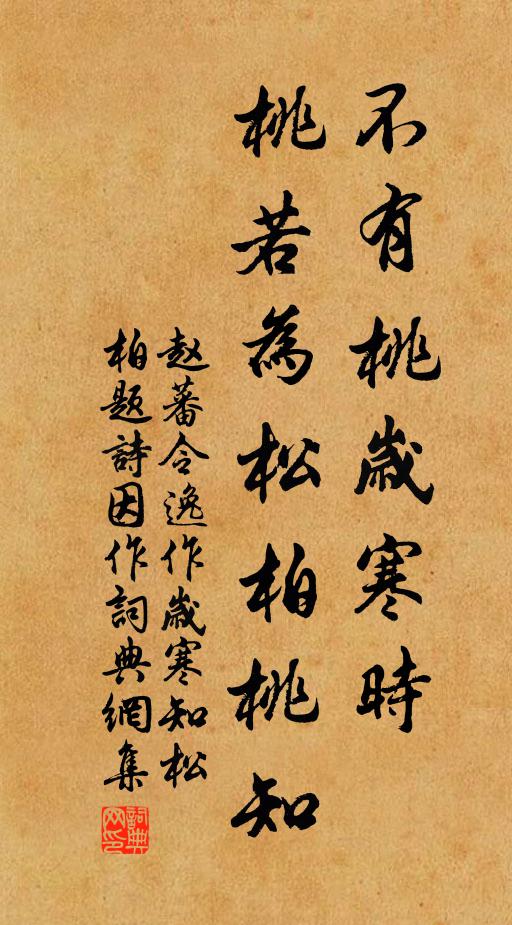 不有桃歲寒時
桃若為松柏桃知
赵蕃令逸作歲寒知松
柏題詩因作詞典網集
詞典网印